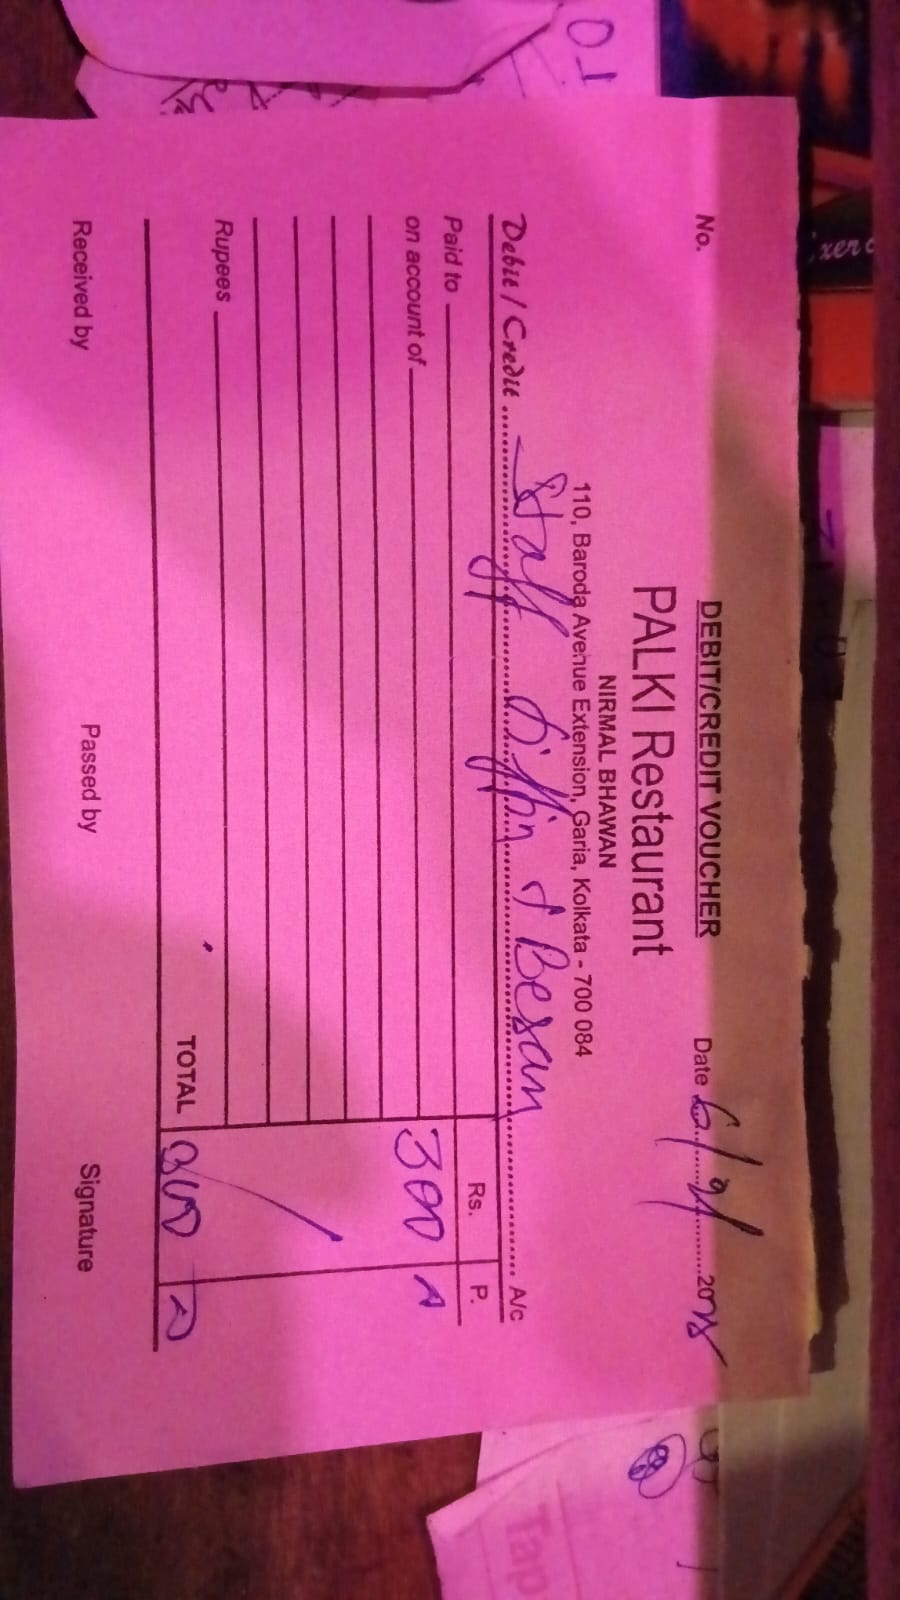 DEBIT/CREDIT VOUCHER
No.
Date 6/9/2025
PALKI Restaurant
NIRMAL BHAWAN
110, Baroda Avenue Extension, Garia, Kolkata - 700 084
Debit / Credit Staff Tiffin & Besan A/c
Paid to Rs. P.
on account of 300
Rupees
TOTAL 300
Received by Passed by Signature
Tap